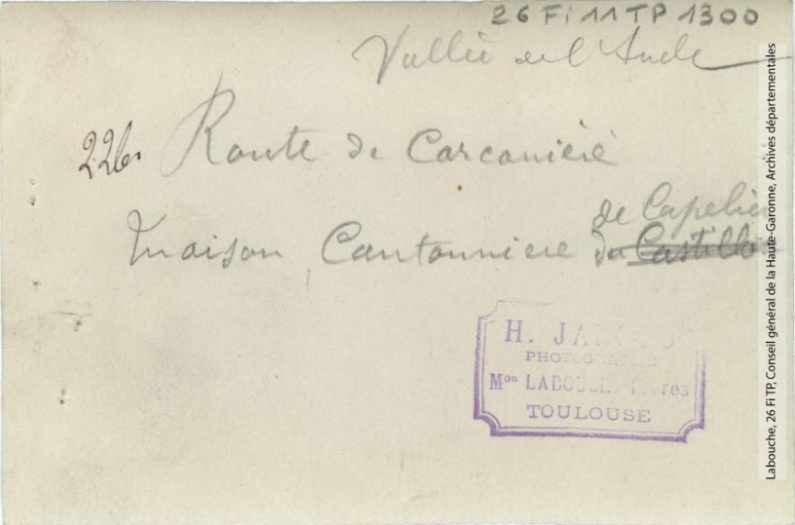 26 Fi 11 TP 1300
Vallée de l'Aude
Route de Carcanière
de
Maison Cantonniere du Castillo
H.
PHOTOGRAPHE
Mon LABOUCHE Frères
TOULOUSE
Labouche, 26 Fi TP, Conseil général de la Haute-Garonne, Archives départementales